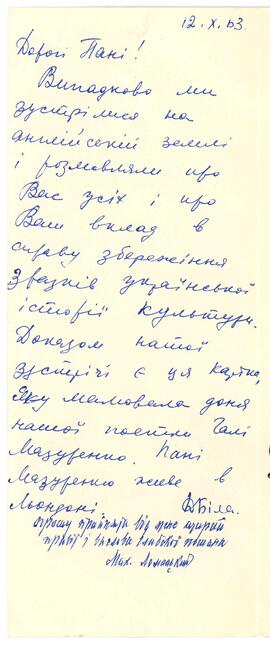 12.X.63.
Дорогі Пані!
Випадково ми
зустрілися на
англійській землі
і розмовляли про
Вас усіх і про
Ваш вклад в
справу збереження
звязків української
історії культури.
Доказом нашої
зустрічі є ця картка,
яку малювала доня
нашої поетки Галі
Мазуренко. Пані
Мазуренко живе в
Льондоні. Д Біла.
прошу прийняти від мене щирий
привіт і вислови глибокої пошани
Мих. Ломацький